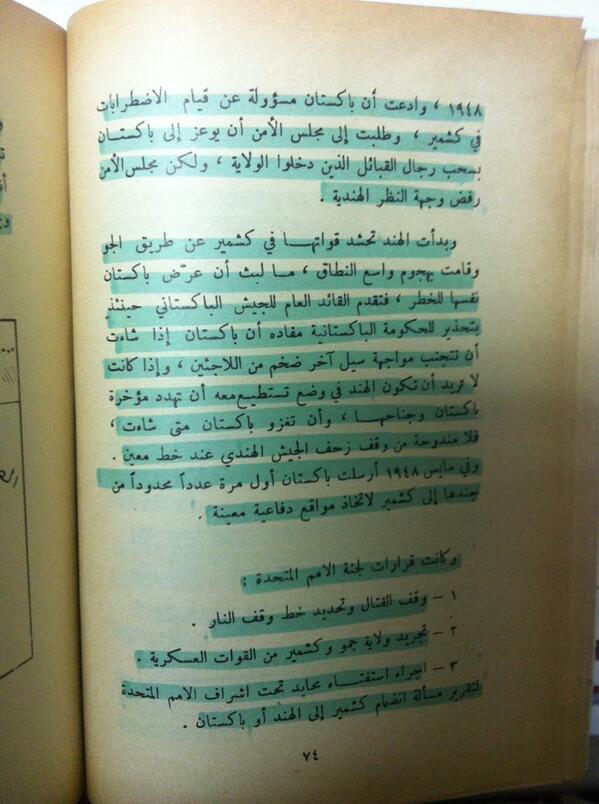 ١٩٤٨ ، وادعت أن باكستان مسؤولة عن قيام الاضطرابات
في كشمير ، وطلبت إلى مجلس الأمن أن يوعز إلى باكستان
بسحب رجال القبائل الذين دخلوا الولاية ، ولكن مجلس الأمن
رفض وجهة النظر الهندية .
وبدأت الهند تحشد قواتها في كشمير عن طريق الجو
وقامت بهجوم واسع النطاق ، ما لبث أن عرّض باكستان
نفسها للخطر ، فتقدم القائد العام للجيش الباكستاني حينئذ
بتحذير للحكومة الباكستانية مفاده أن باكستان إذا شاءت
أن تتجنب مواجهة سيل آخر ضخم من اللاجئين ، وإذا كانت
لا تريد أن تكون الهند في وضع تستطيع معه أن تهدد مؤخرة
باكستان وجناحها ، وأن تغزو باكستان متى شاءت ،
فلا مندوحة من وقف زحف الجيش الهندي عند خط معين .
وفي مايس ١٩٤٨ أرسلت باكستان أول مرة عدداً محدوداً من
جندها إلى كشمير لاتخاذ مواقع دفاعية معينة .
وكانت قرارات لجنة الامم المتحدة :
١ – وقف القتال وتحديد خط وقف النار .
٢ – تجريد ولاية جمو وكشمير من القوات العسكرية .
٣ – اجراء استفتاء محايد تحت اشراف الامم المتحدة
لتقرير مسألة انضمام كشمير إلى الهند أو باكستان .
٧٤